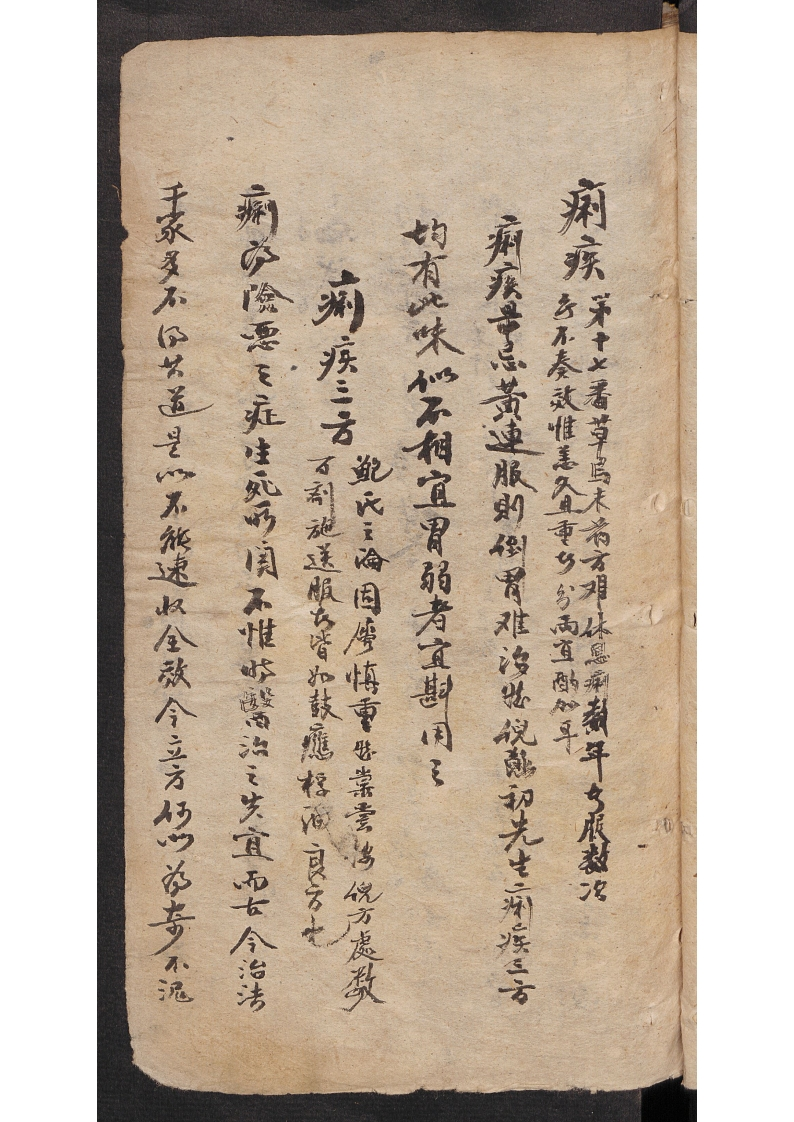 痢疾
第十七番草烏末前方雖休息痢數年者服數次
無不奏效惟恙久且重者分兩宜酌加耳
痢疾最忌黃連服則倒胃难治然倪初先生痢疾三方
均有此味似不相宜胃弱者宜斟用之
痢疾三方
鮑氏之論固属慎重然棠嘗按倪方處數
百劑施送服者皆如鼓應桴洵良方也
痢為險惡之症生死所関不惟時醫治之失宜而古今治法
千家多不得其道是以不能速收全效今立方何以為奇不泥